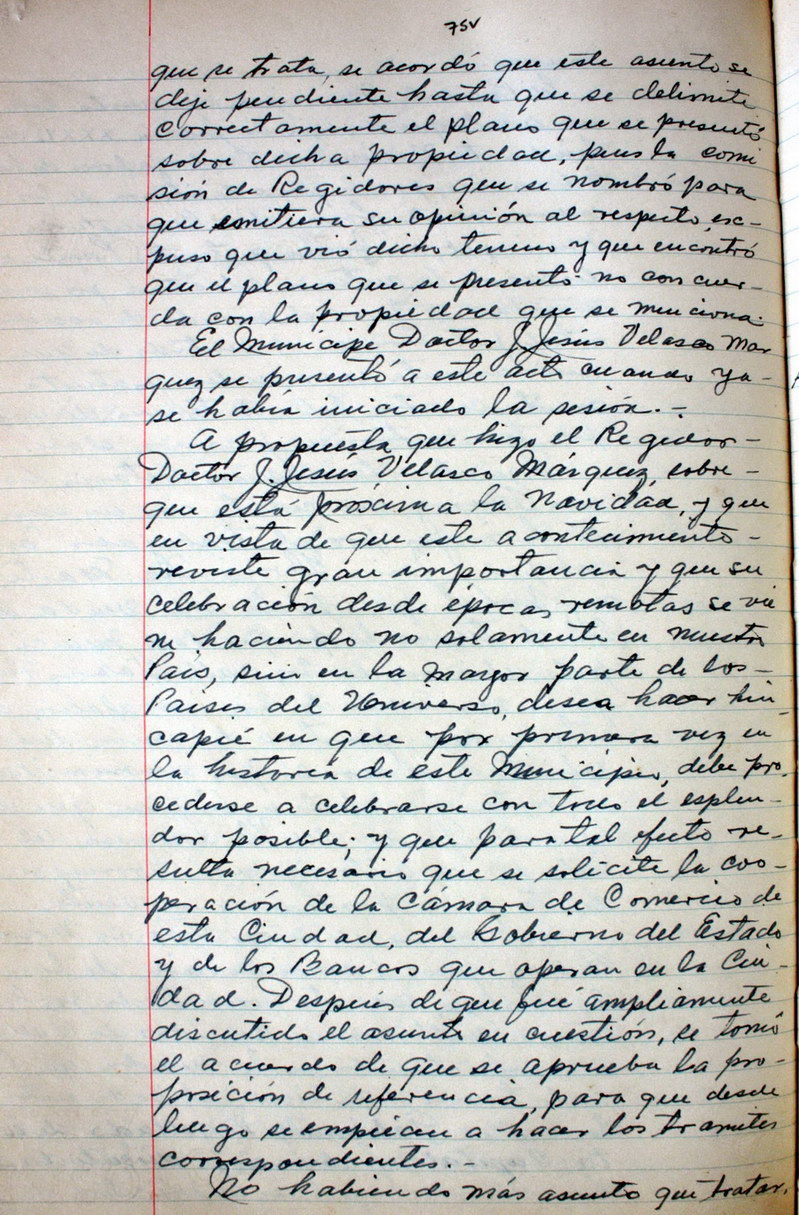 75v
que se trata, se acordó que este asunto se
deje pendiente hasta que se delimite
correctamente el plano que se presentó
sobre dicha propiedad, pues la comi
sión de Regidores que se nombró para
que emitiera su opinión al respecto, ex-
puso que vió dicho terreno y que encontró
que el plano que se presentó no concuer-
da con la propiedad que se menciona.
El Munícipe Doctor J. Jesús Velasco Mar
quez se presentó a este acto cuando ya-
se había iniciado la sesión.-
A propuesta que hizo el Regidor-
Doctor J. Jesús Velasco Márquez, sobre-
que está próxima la Navidad, y que
en vista de que este acontecimiento-
reviste gran importancia y que su
celebración desde épocas remotas se vie
ne haciendo no solamente en nuestro
País, sino en la mayor parte de los-
Países del Universo, desea hacer hin-
capié en que por primera vez en
la historia de este Municipio, debe pro-
cederse a celebrarse con todo el esplen-
dor posible; y que para tal efecto re-
sulta necesario que se solicite la coo-
peración de la Cámara de Comercio de
esta Ciudad, del Gobierno del Estado
y de los Bancos que operan en la Ciu-
dad. Después de que fué ampliamente
discutido el asunto en cuestión, se tomó
el acuerdo de que se aprueba la pro-
posición de referencia, para que desde
luego se empiecen a hacer los tramites
correspondientes.-
No habiendo más asunto que tratar,